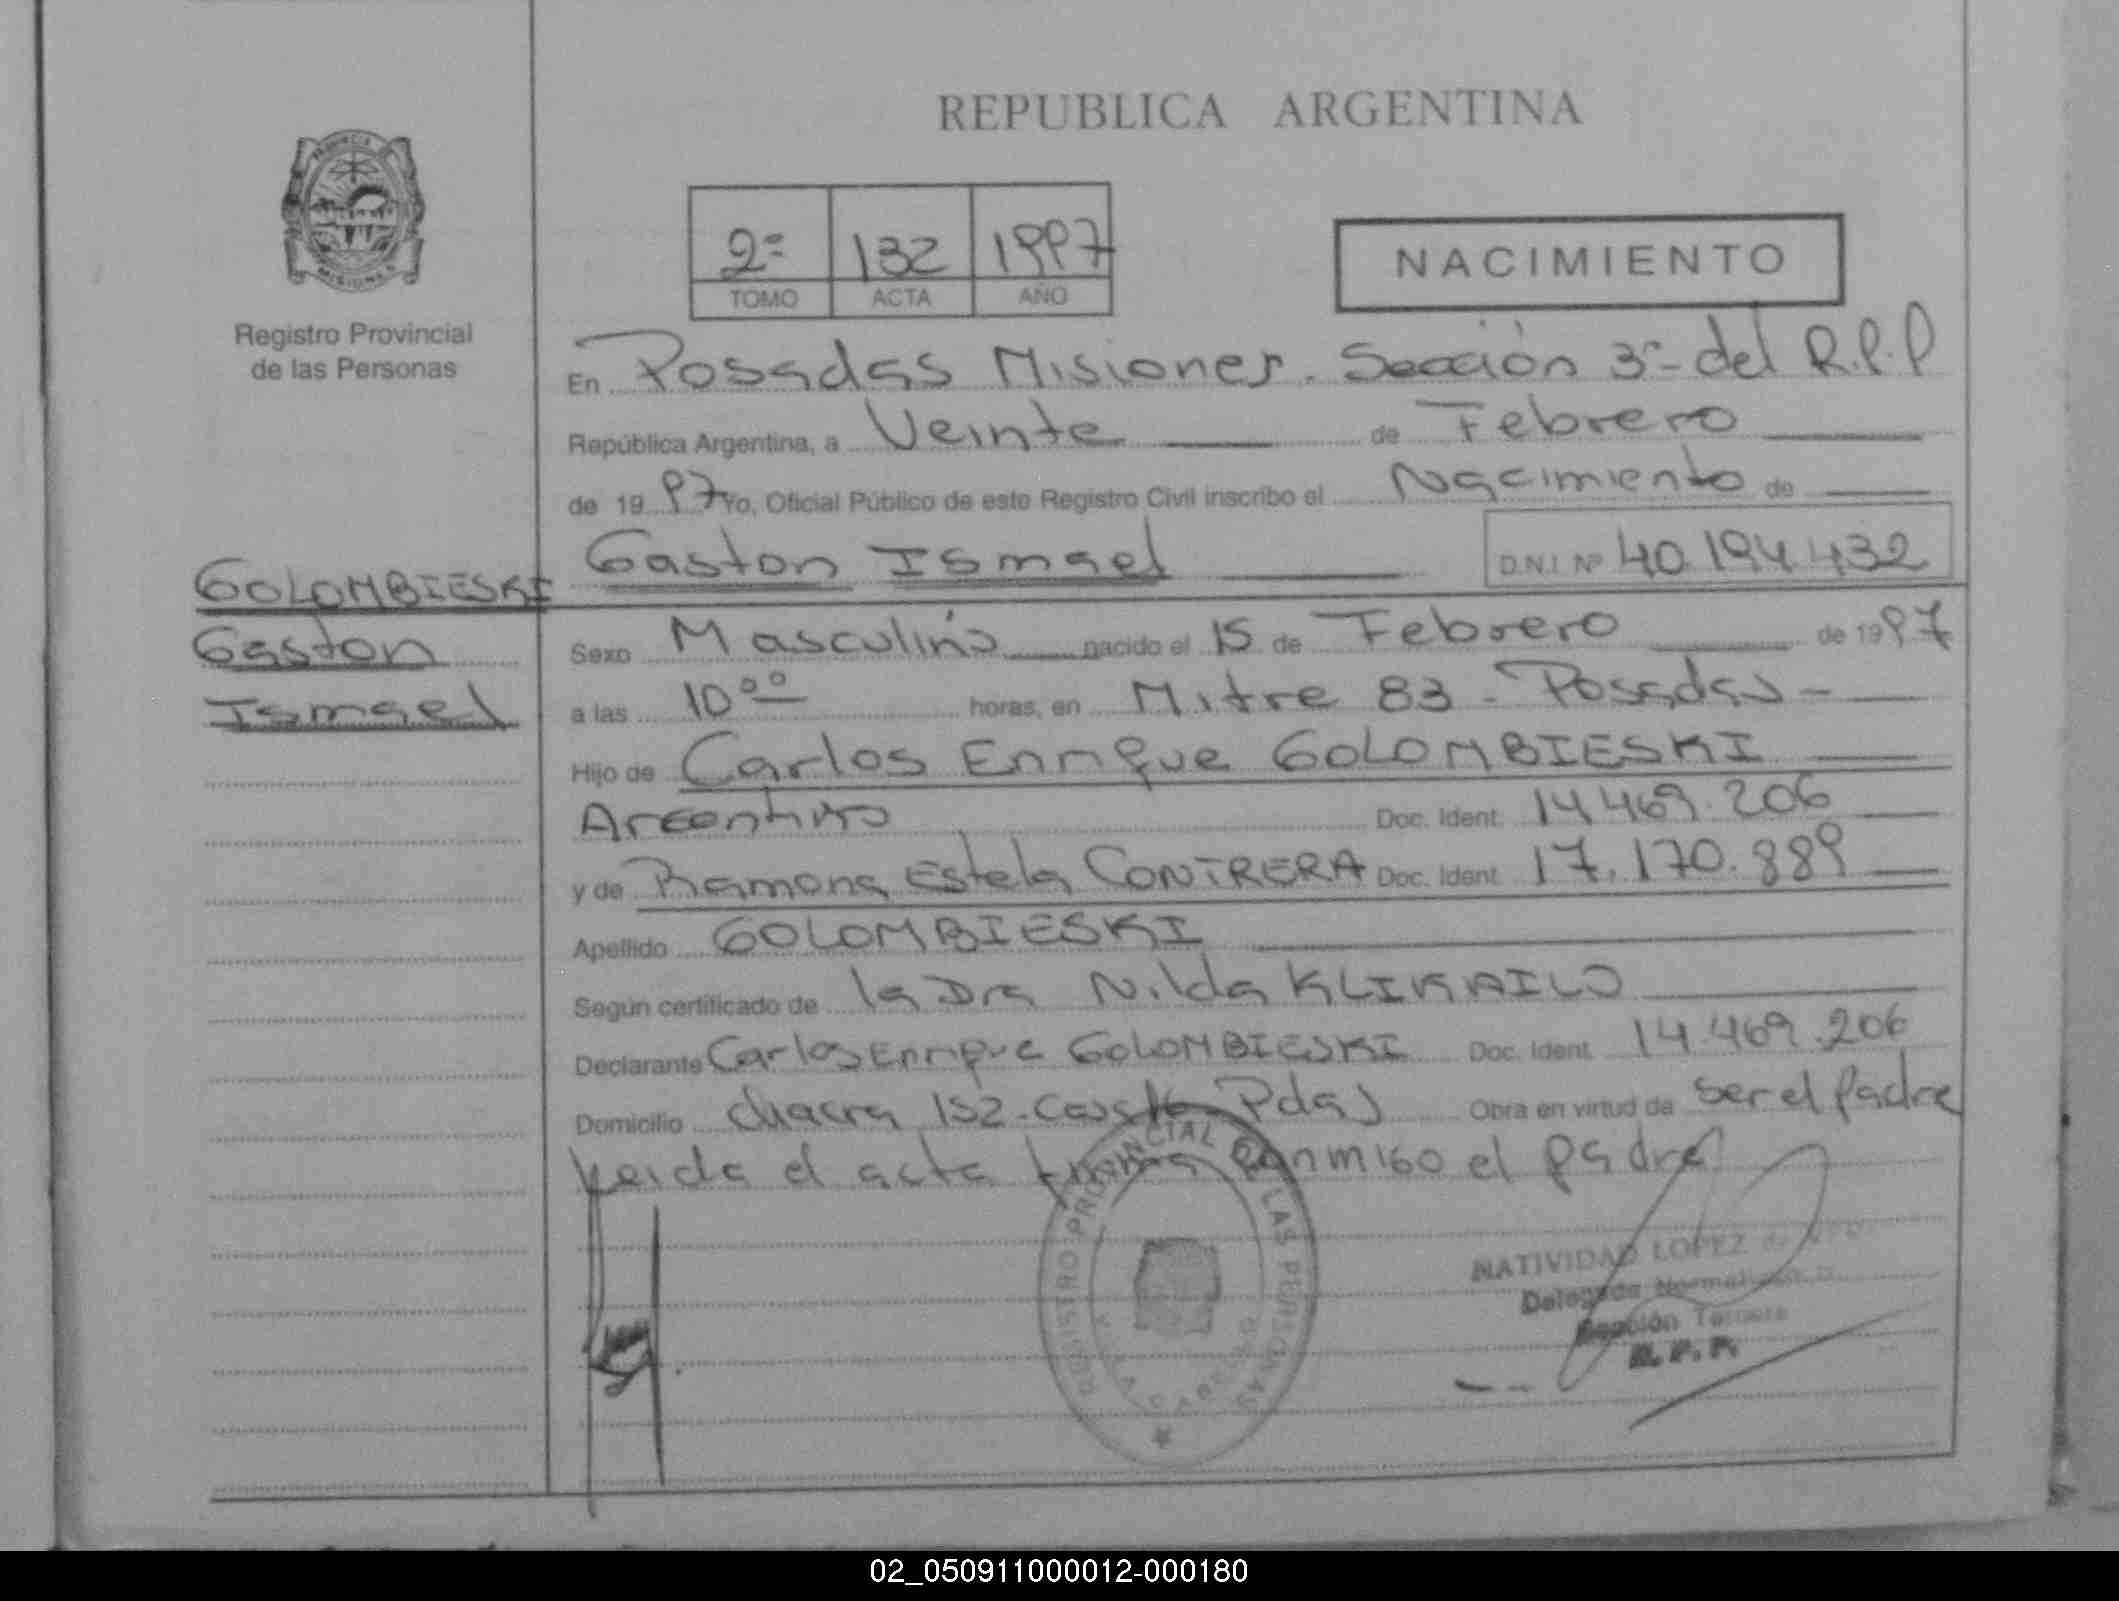 REPUBLICA ARGENTINA
PROVINCIA
MISIONES
Registro Provincial
de las Personas
2º 132 1997
TOMO ACTA AÑO
NACIMIENTO
En Posadas Misiones. Sección 3º del R.P.P
República Argentina, a Veinte de Febrero
de 1997 Yo, Oficial Público de este Registro Civil inscribo el Nacimiento de
Gaston Ismael D.N.I. Nº 40.194.432
GOLOMBIESKI
Gaston
Ismael
Sexo Masculino nacido el 15 de Febrero de 1997
a las 10 00 horas, en Mitre 83 - Posadas -
Hijo de Carlos Enrique GOLOMBIESKI
Argentino Doc. Ident. 14.469.206
y de Ramona Estela CONTRERA Doc. Ident. 17.170.889
Apellido GOLOMBIESKI
Según certificado de la Dra Nilda
Declarante Carlos Enrique GOLOMBIESKI Doc. Ident. 14.469.206
Domicilio chacra 152 - Pdas Obra en virtud de ser el padre
Leida el acta firma conmigo el padre
REGISTRO PROVINCIAL DE LAS PERSONAS
POSADAS
NATIVIDAD LOPEZ de
Delegada Normalizada
Sección Tercera
R. P. P.
02_050911000012-000180